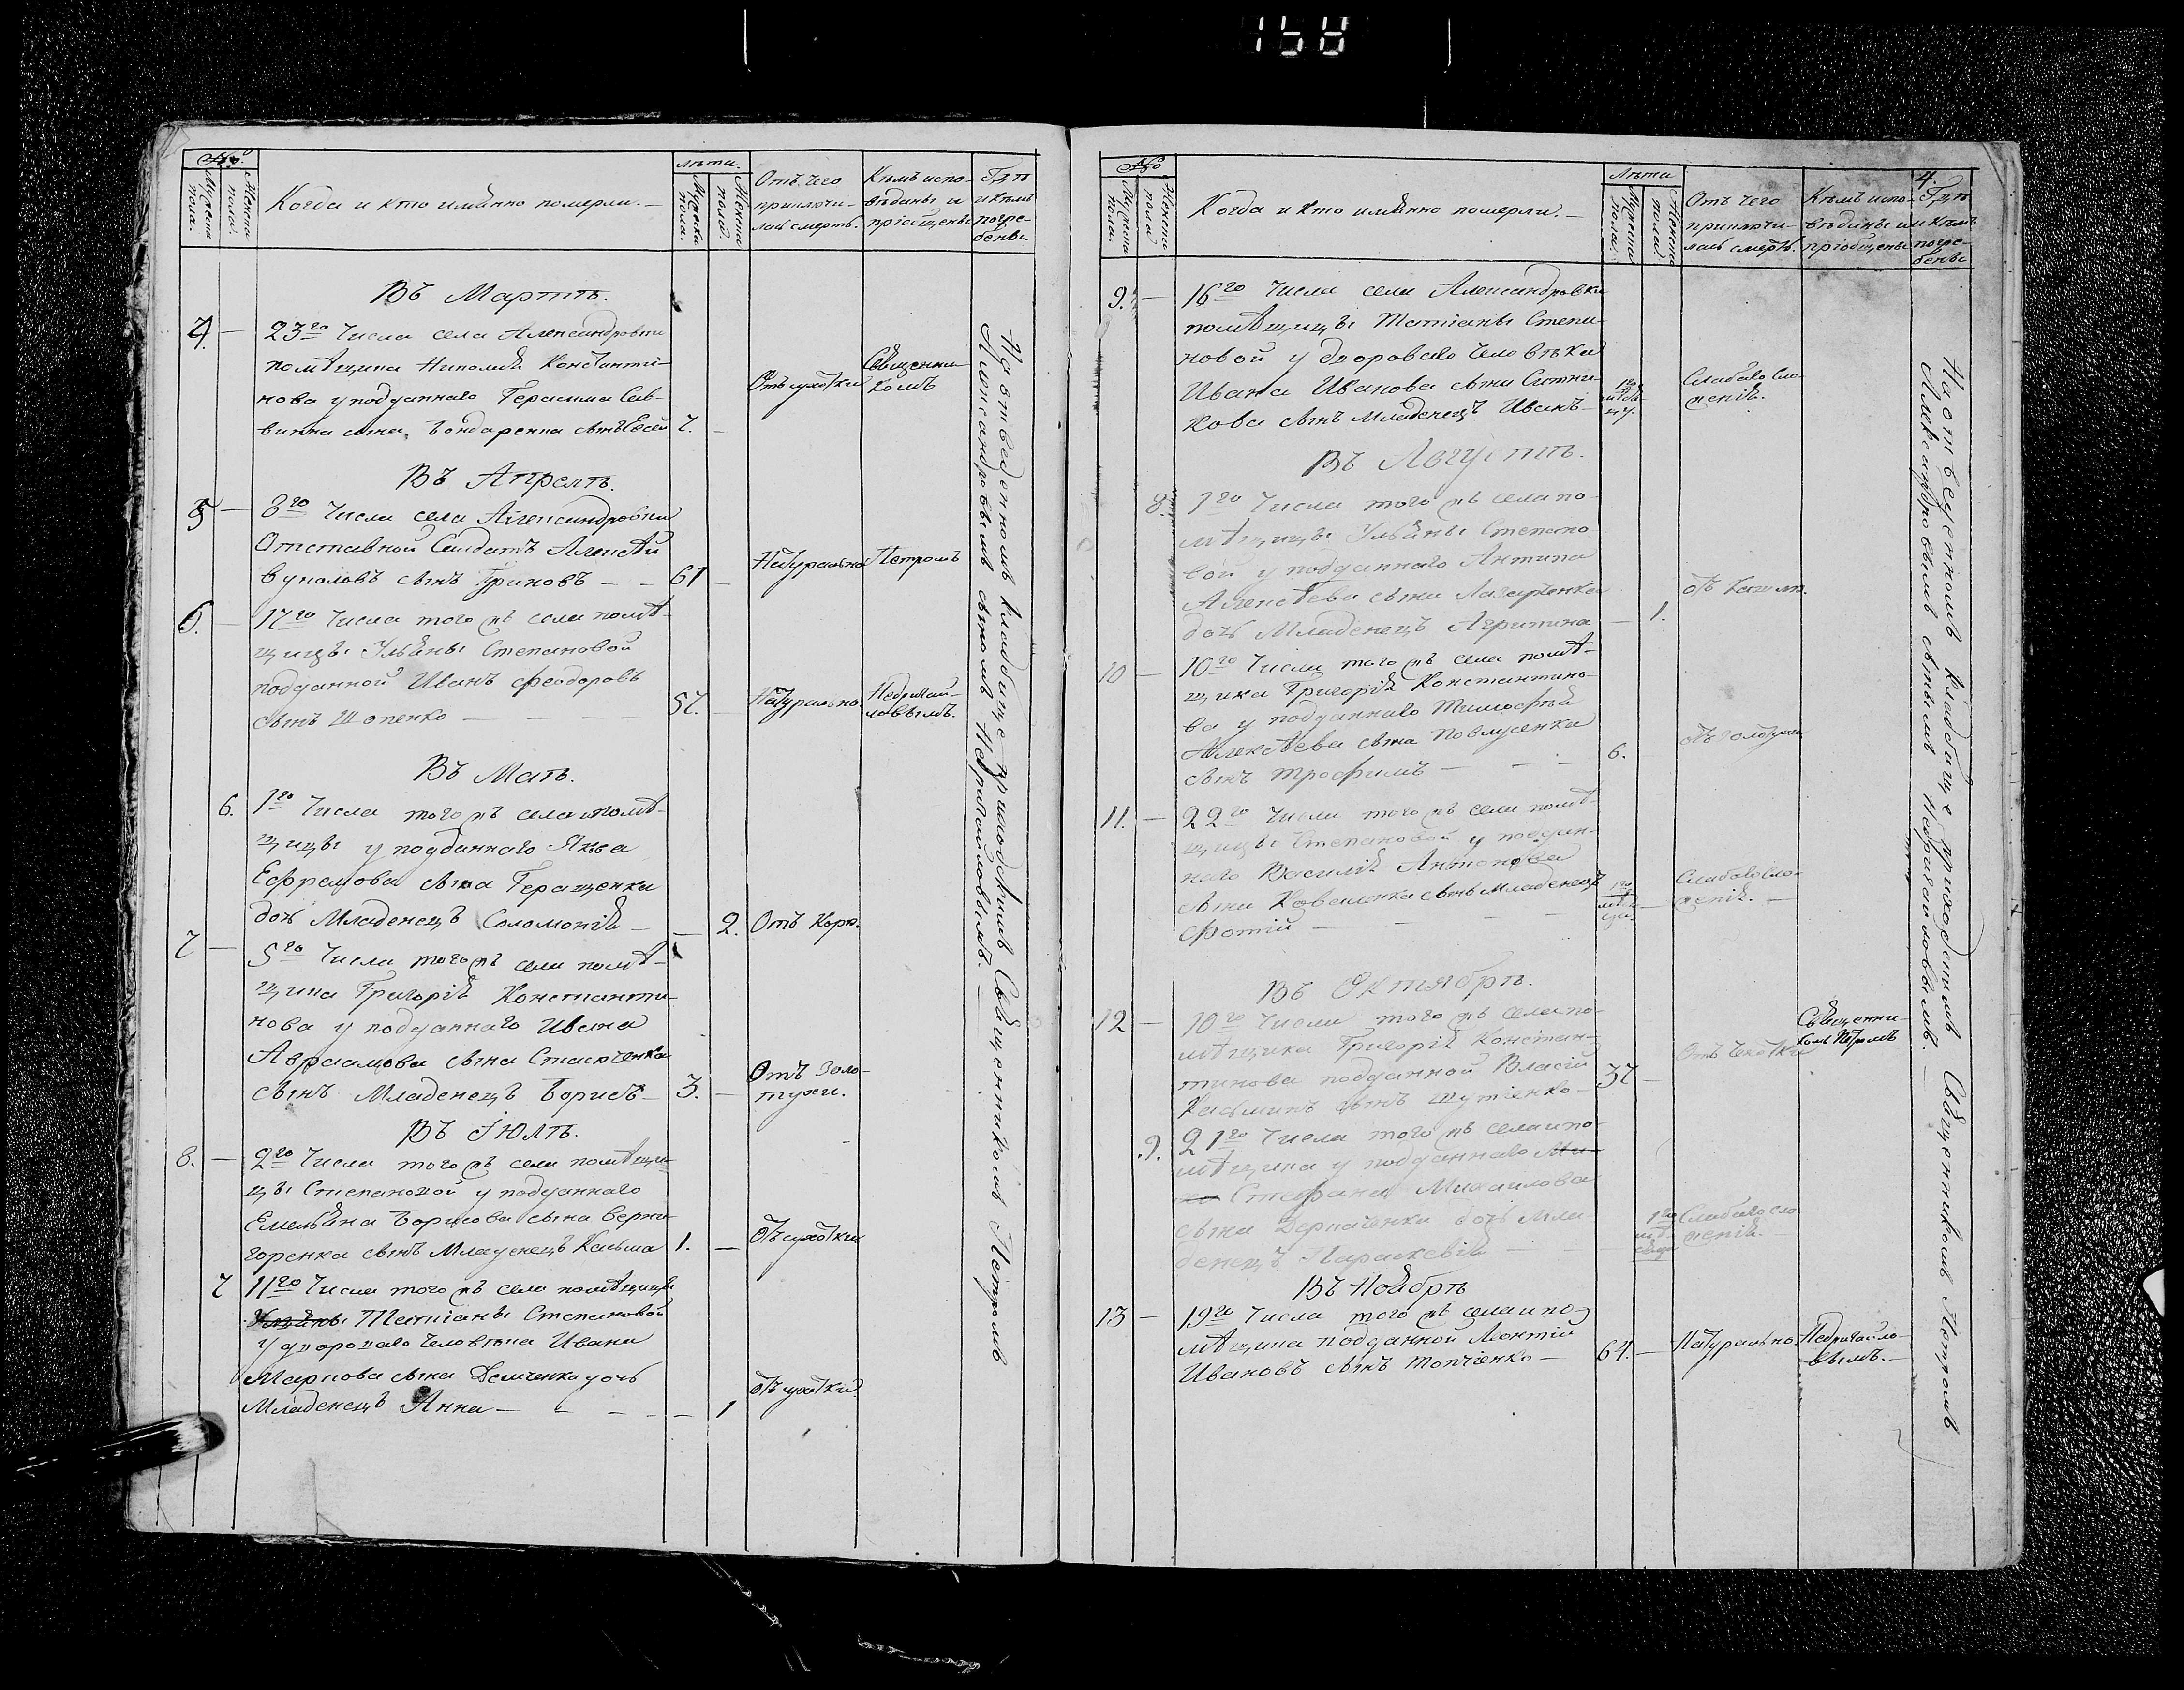 158
№
Мужеска пола.
Женска пола.
Когда и кто имянно померли. —
Лѣта.
Мужеска пола.
Женска пола.
Отъ чего
приключи-
лась смерть.
Кѣмъ испо-
вѣданы и
пріобщены
Гдѣ
и кѣмъ
погре-
бены.
Въ Мартѣ.
4. — 23го Числа села Александровки
помѣщика Николая Константи-
нова у подданнаго Герасима Сав-
вина сына Бондаренка сынъ 7. —
Отъ сухотки
Священни-
комъ
Въ Апрелѣ.
5 — 8го Числа села Александровки
Отставной Салдатъ Алексѣй
Вуколовъ сынъ Гриновъ — — 61 —
Натурально
Петромъ
6. — 17го Числа того жъ села помѣ-
щицы Ульяны Степановой
подданной Иванъ Феодоровъ
сынъ Шопенко — — — — 57. —
Натурально.
Недригай-
ловымъ.
Въ Маѣ.
6. 1го Числа того жъ села помѣ-
щицы у подданнаго Якова
Ефремова сына Геращенка
дочь Младенецъ Соломонія — — 2.
Отъ Кори.
7 — 5го Числа того жъ села помѣ-
щика Григорія Константи-
нова у подданнаго Ивана
Авраамова сына
сынъ Младенецъ Борисъ — 3. —
Отъ Золо-
тухи.
Въ Іюлѣ.
8. — 2го Числа того жъ села помѣщи-
цы Степановой у подданнаго
Емельяна Борисова сына Верни-
горенка сынъ Младенецъ Касьма 1. —
Отъ сухотки
7 11го Числа того жъ села помѣщицы
Ульяны Татіаны Степановой
у двороваго Человѣка Ивана
Маркова сына Демченка дочь
Младенецъ Анна — — — — — 1
Отъ сухотки.
На отведенномъ кладбище приходскимъ Священникомъ Петромъ
Александровымъ сыномъ Недригайловымъ. —
4.
№
Мужеска пола.
Женска пола
Когда и кто имянно померли. —
Лѣта
Мужеска пола.
Женска пола.
Отъ чего
приключи-
лась смерть.
Кѣмъ испо-
вѣданы и
пріобщены
Гдѣ
и кѣмъ
погре-
бены
9. — 16го Числа села Александровки
помѣщицы Татіаны Степа-
новой у двороваго Человѣка
Ивана Иванова сына Ситни-
кова сынъ Младенецъ Иванъ —
Слабаго сло-
женія.
Въ Августѣ.
8. 1го Числа того жъ села по-
мѣщицы Ульяны Степано
вой у подданнаго Антипа
Алексѣева сына Лазаренка
дочь Младенецъ Агрипина — 1.
Отъ Кашля.
10 — 10го Числа того жъ села помѣ-
щика Григорія Константино-
ва у подданнаго Тимофѣя
Алексѣева сына Повлусенка
сынъ Трофимъ — — — 6.
11. — 22го Числа того жъ села помѣ-
щицы Степановой у поддан-
наго Василія Антонова
сына Коваленка сынъ Младенецъ
Фотій — — —
Слабаго сло-
женія. —
Въ Октябрѣ.
12 — 10го Числа того жъ села по-
мѣщика Григорія Констан-
тинова подданной Власій
Касьминъ сынъ Шутченко — 37 —
Отъ Чехотки
Священни-
комъ Петромъ
9. 21го Числа того жъ села и по-
мѣщика у подданнаго Ми-
Стефана Михаилова
сына Деркаченка дочь Мла
денецъ Параскевія —
Слабаго сло
женія. —
Въ Ноябрѣ
13 — 19го Числа того жъ села и по-
мѣщика подданной Леонтій
Ивановъ сынъ Топчіенко — 64. —
Натурально.
Недригайло-
вымъ. —
На отведенномъ кладбище приходскимъ Священникомъ Петромъ
Александровымъ сыномъ Недригайловымъ. —